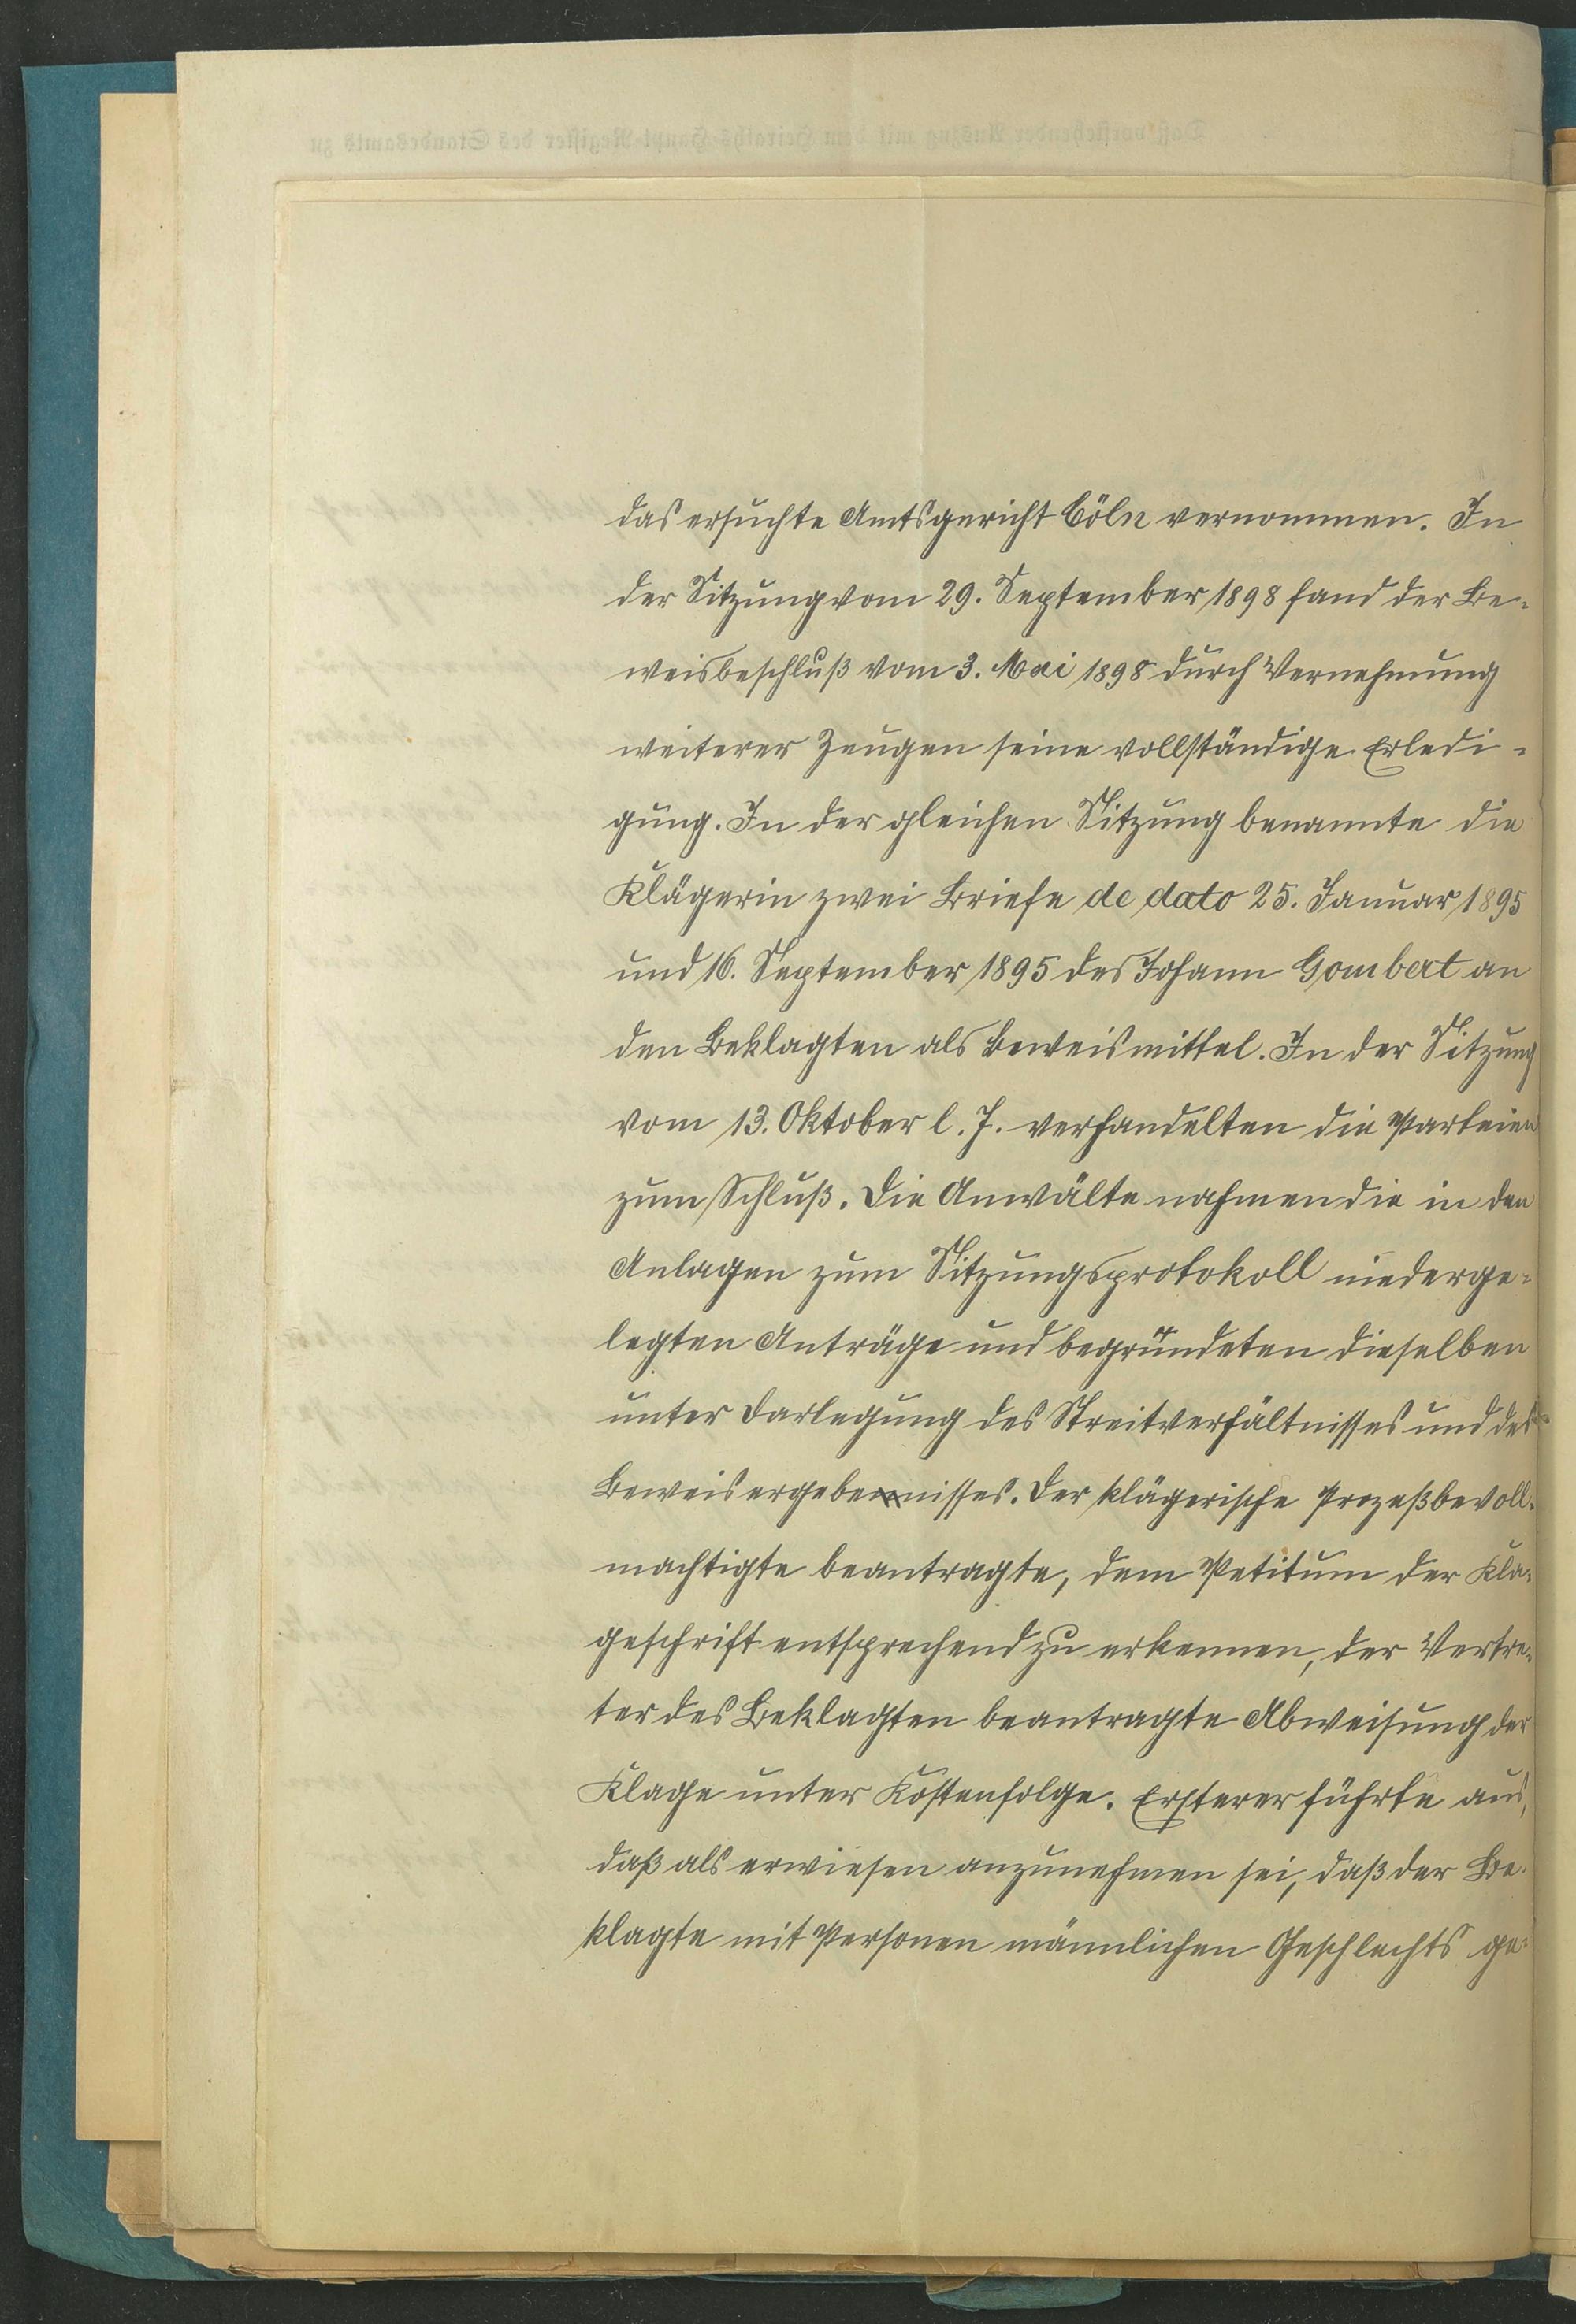 das ersuchte Amtsgericht Cöln vernommen. In
der Sitzung vom 29. September 1898 fand der Be-
weisbeschluß vom 3. Mai 1898 durch Vernehmung
weiterer Zeugen seine vollständige Erledi-
gung. In der gleichen Sitzung benannte die
Klägerin zwei Briefe de dato 25. Januar 1895
und 16. September 1895 des Johann Gombert an
den Beklagten als Beweismittel. In der Sitzung
vom 13. Oktober l. J. verhandelten die Parteien
zum Schluß. Die Anwälte nahmen die in den
Anlagen zum Sitzungsprotokoll niederge-
legten Anträge und begründeten dieselben
unter Darlegung des Streitverhältnisses und des
Beweisergebnisses. Der klägerische Prozeßbevoll-
machtigte beantragte, dem Petitum der Kla-
geschrift entsprechend zu erkennen, der Vertre-
ter des Beklagten beantragte Abweisung der
Klage unter Kostenfolge. Ersterer führte aus,
daß als erwiesen anzunehmen sei, daß der Be-
klagte mit Personen männlichen Geschlechts ge-